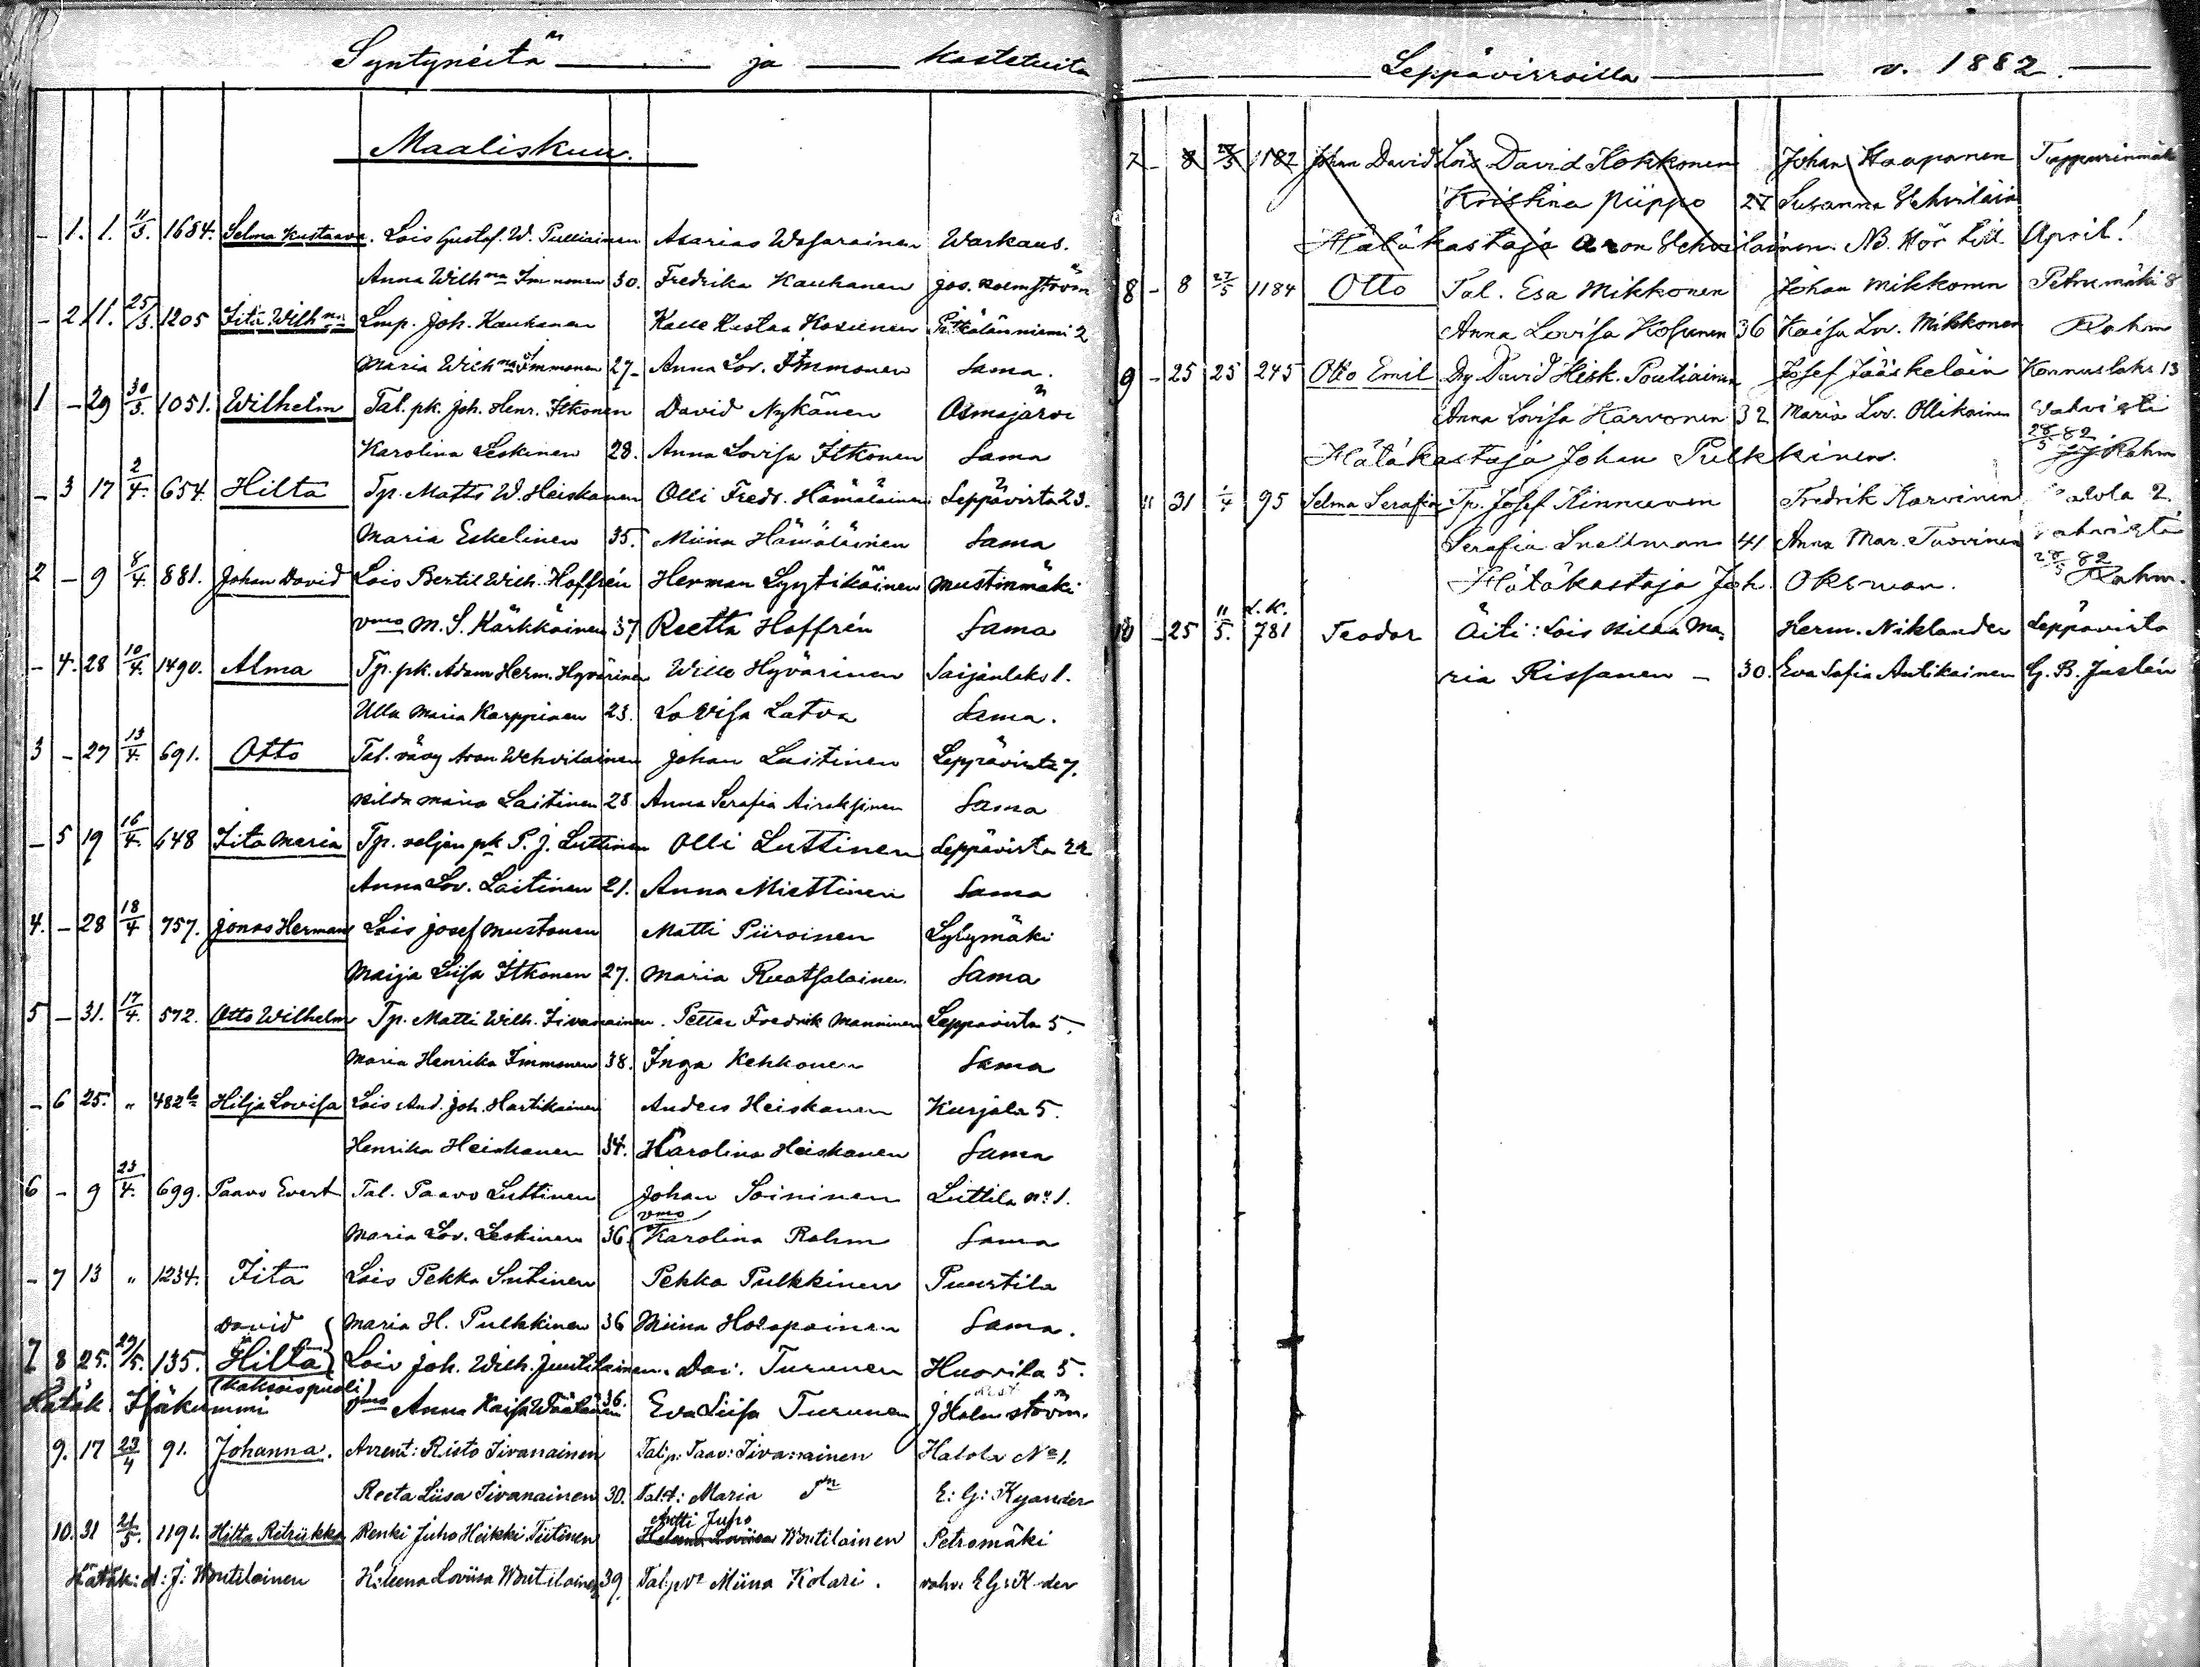 Syntyneitä ja kastetuita
Maaliskuu.
- 1. 1. 11/3. 1684. Selma Kustaava. Lois Gustaf. W. Pulliainen Asarias Wasarainen Warkaus.
Anna Wilhna Immonen 30. Fredrika Kauhanen Jos. Holmström
- 2 11. 25/3. 1205 Iita Wilhna Lmp. Joh. Kauhanen Kalle Kustaa Hosienen Pitkälänniemi 2
Maria Wilhna Immonen 27- Anna Lov. Immonen Sama.
1 - 29 30/3. 1051. Wilhelm Tal. pk. Joh. Henr. Itkonen David Nykänen Osmajärvi
Karolina Leskinen 28. Anna Lovisa Itkonen Sama
- 3 17 2/4. 654. Hilta Tp. Matts W. Heiskanen Olli Fredr. Hämäläinen Leppävirta 23.
Maria Eskelinen 35. Miina Hämäläinen Sama
2 - 9 8/4. 881. Johan David Lois Bertil Wilh. Hoffrén Herman Lyytikäinen Mustinmäki
vmo M. S. Kärkkäinen 37 Reetta Hoffrén Sama
- 4. 28 10/4. 1490. Alma Tp. pk. Adam Herm. Hyvärinen Wille Hyvärinen Saijanlaks 1.
Ulla Maria Karppinen 23. Lovisa Latva Sama.
3 - 27 13/4. 691. Otto Tal. vävy Aron Wehvilainen Johan Laitinen Leppävirta 7.
Hilda Maria Laitinen 28 Anna Serafia Airaksinen Sama
- 5 19 16/4. 648 Iita Maria Tp. veljen pk P. J. Luttinen Olli Luttinen Leppävirta 22
Anna Lov. Laitinen 21. Anna Miettinen Sama
4. - 28 18/4 757. Jonas Herman Lois Josef Mustonen Matti Piiroinen Lylymäki
Maija Liisa Itkonen 27. Maria Ruotsalainen. Sama
5 - 31. 17/4. 572. Otto Wilhelm Tp. Matti Wilh. Iivanainen. Petter Fredrik Manninen Leppävirta 5.
Maria Henrika Immonen 38. Inga Kekkonen Sama
- 6 25. " 482 b Hilja Lovisa Lois And. Joh. Hartikainen Anders Heiskanen Kurjala 5.
Henrika Heiskanen 34. Karolina Heiskanen Sama
6 - 9 23/4. 699. Paavo Evert Tal. Paavo Luttinen Johan Soininen Luttila No 1.
Maria Lov. Leskinen 36. vmo Karolina Rahm Sama
- 7 13 " 1234. Iita Lois Pekka Sutinen Pekka Pulkkinen Puurtila
David Maria H. Pulkkinen 36 Miina Holopainen Sama.
7 8 25. 29/5. 135. Hilta Lois Joh. Wilh. Juutilainen. Dav. Turunen Huorila 5.
(kaksoispuoli)
Hätäk. Itäkummi vmo Anna Kaisa Wäätäinen 36. Eva Liisa Turunen J Holmström.
9. 17 23/4 91. Johanna. Arrent: Risto Iivanainen Tal:p: Paav: Iivanainen Halola No 1.
Reeta Liisa Iivanainen 30. Tal:t: Maria Sn E: G: Kyander
10. 31 21/5. 1191. Hilta Retriikka Renki Juho Heikki Tiitinen Antti Juho Woutilainen Petromäki
Hätäk: A: J: Woutilainen Heleena Loviisa Woutilainen 39. Tal:pvo Miina Kolari. vahv. EG:K-der
Leppävirroilla v. 1882.
7 - 8 27/5 1182 Johan David Lois David Kokkonen Johan Haapanen Tappurinmäki
Kristina Piippo 27 Susanna Vehviläin
Hätäkastaja Aron Vehviläinen. NB. Hör till April!
8 - 8 27/5 1184 Otto Tal. Esa Mikkonen Johan Mikkonen Petrumäki 8
Anna Lovisa Kosunen 36 Kaisa Lov. Mikkonen Rahm
9 - 25 25 245 Otto Emil Dg David Heik. Poutiainen Josef Jääskeläin Konnuslaks 13
Anna Lovisa Karvonen 32 Maria Lov. Ollikainen Vahvisti
Hätäkastaja Johan Pulkkinen. 28/5 82 JJ Rahm
" 31 1/4 95 Selma Serafia Tp. Josef Kinnunen Fredrik Karvinen
Serafia Snellman 41 Anna Mar. Tuovinen vahvisti
Hätäkastaja Joh. Oksman. 28/5 82 Rahm.
10 - 25 11/5. L. K. 781 Teodor Äiti: Lois Hilda Ma- Herm. Niklander Leppävirta
ria Rissanen - 30. Eva Sofia Antikainen G. B. Juslén